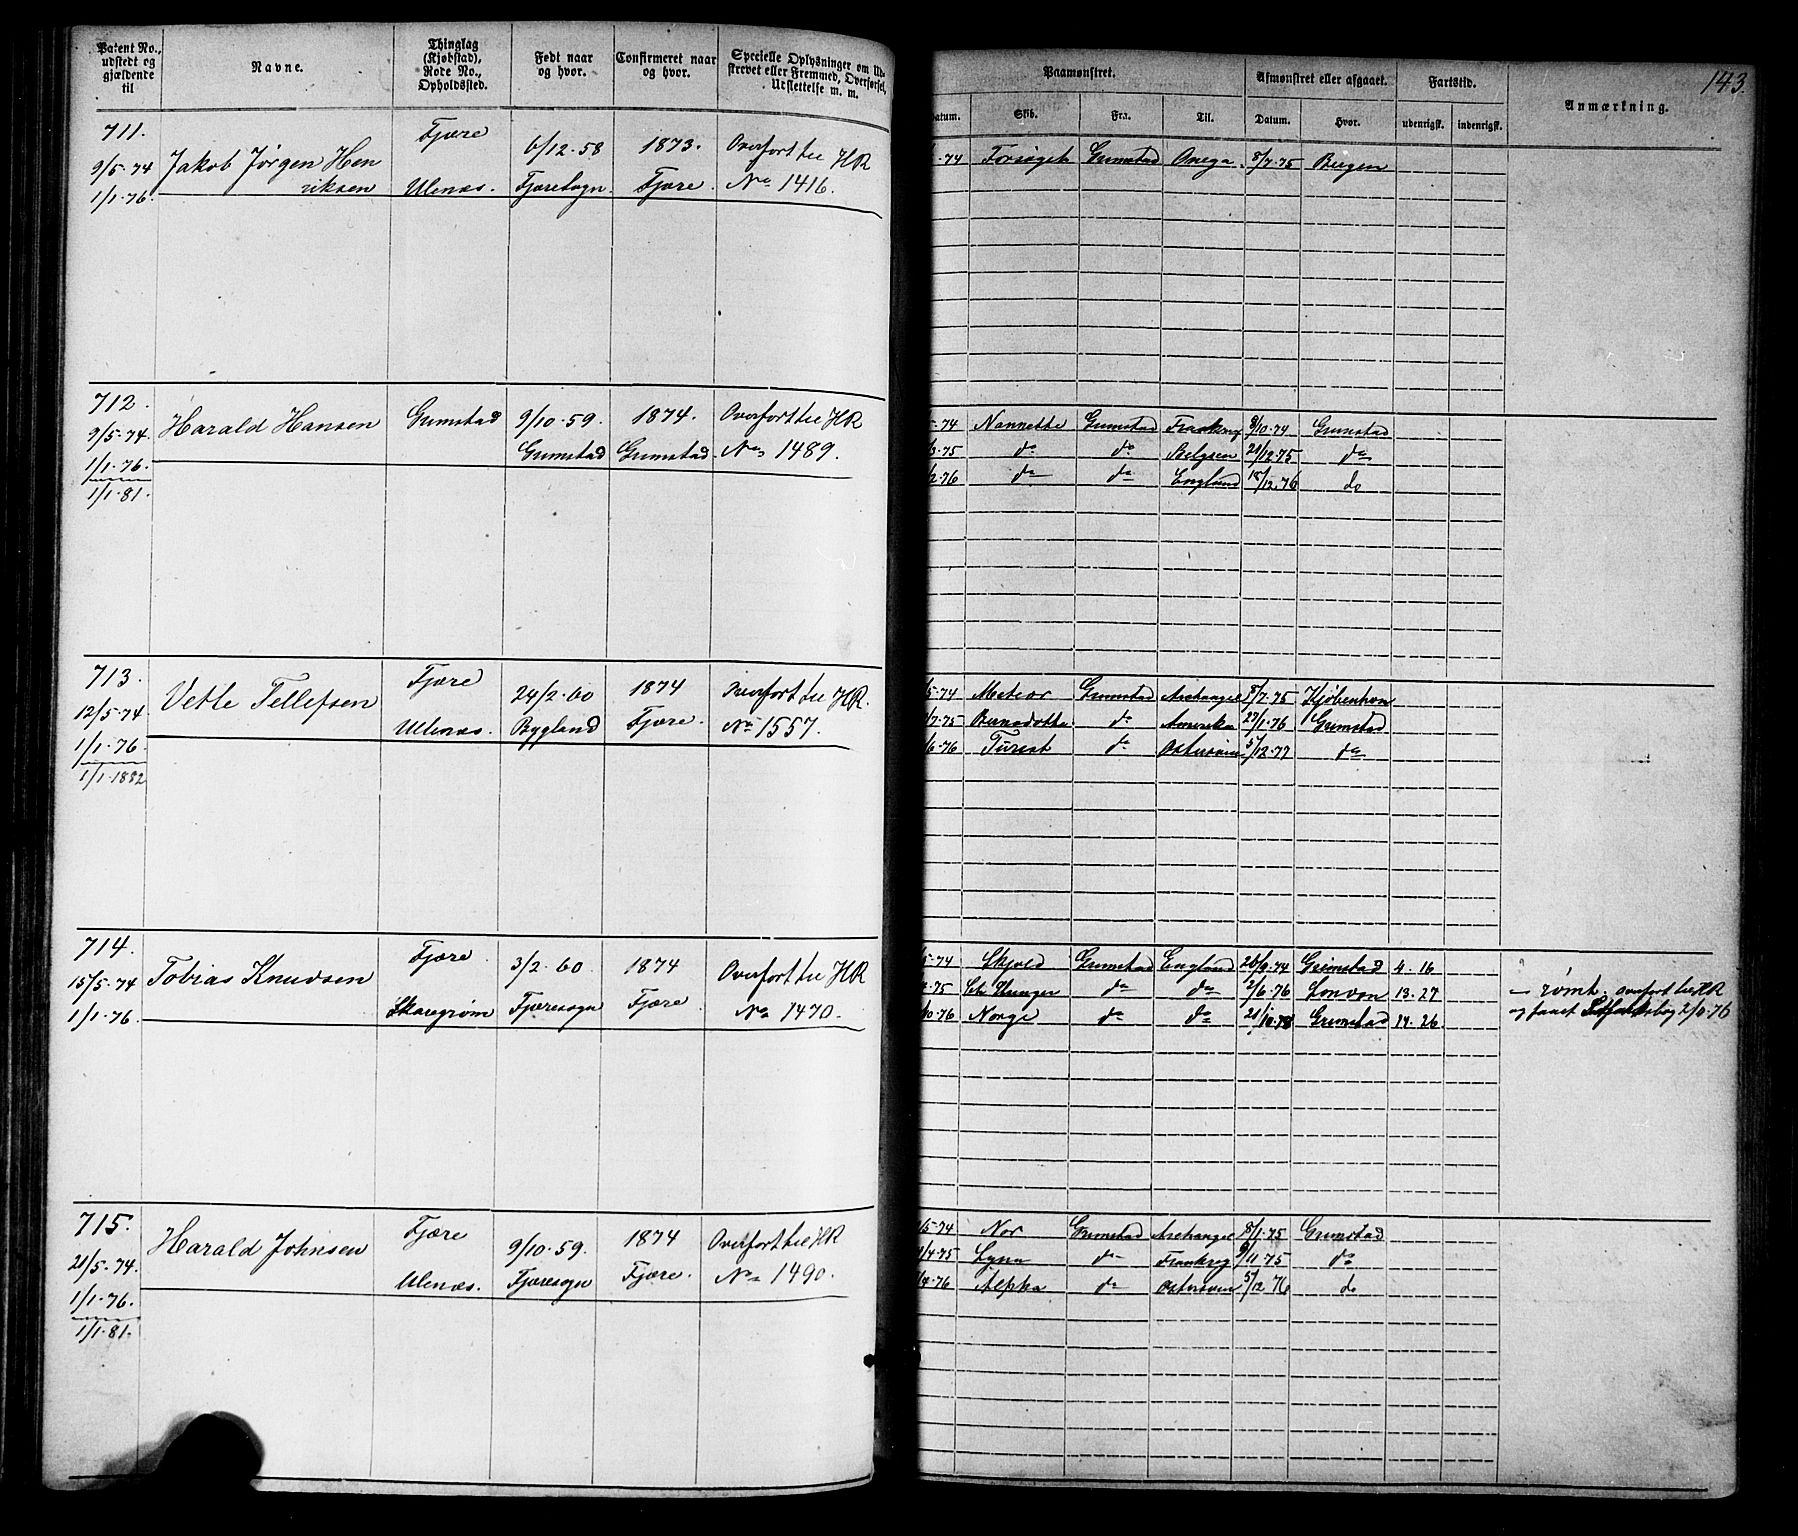 Patent No., udstedt og gjældende til
Navne.
Thinglag (Kjøbstad), Rode No., Opholdssted.
Født naar og hvor.
Confirmeret naar og hvor.
Specielle Oplysninger om Ud-
skrevet eller Fremmed, Overførsel,
Udslettelse m. m.
Paamønstret.
Afmønstret eller afgaaet.
Fartstid.
Anmærkning.
143.
Datum. Skib. Fra. Til. Datum. Hvor. udenrigsk. indenrigsk.
711. Fjære
9/5-74 Jakob Jørgen Hen 6/12-58 1873. Overført til HR
riksen Ulenæs. Fjæresogn Fjære. No 1416.
1/1-76.
-74 Forsøget Grimstad Onega 8/7-75 Bergen
712.
9/5-74. Harald Hansen Grimstad 9/10-59. 1874. Overført til HR
1/1-76. Grimstad Grimstad No 1489.
1/1-81.
-74 Nannette Grimstad Frankrig 8/10-74 Grimstad
-75 do do Belgien 20/12-75 do
2-76 do do England 18/12-76 do
713. Fjære
12/5-74 Vetle Tellefsen 24/2-60 1874 Overført til HR.
1/1-76. Ulenæs. Bygland Fjære. No 1557.
1/1-1882
5-74 Meteor Grimstad Archangel 8/7-75 Kjøbenhvn
/7-75 Bernadotte do Amerika 27/1-76 Grimstad
/6-76 Turist do Østersøen 5/12-77 do
714. Fjære
15/5-74 Tobias Knudsen 3/2-60 1874 Overført til HR
1/1-76. Skaregrøm Fjæresogn Fjære No 1470.
5-74 Skjold Grimstad England 26/9-74 Grimstad 4-16
-75 do do 2/6-76 London 13-27 – rømt. overført til HR
/10-76 Norge do do 21/10-78 Grimstad 14-26 og faaet 2/10-76
715. Fjære
21/5-74. Harald Johnsen 9/10-59. 1874 Overført til HR
1/1-76. Ulenæs. Fjæresogn Fjære. No 1490.
1/1-81.
/5-74 Nor Grimstad Archangel 8/1-75 Grimstad
/4-75 Lyna do Frankrig 9/11-75 do
/4-76 Alpha do Østersøen 5/12 76 do